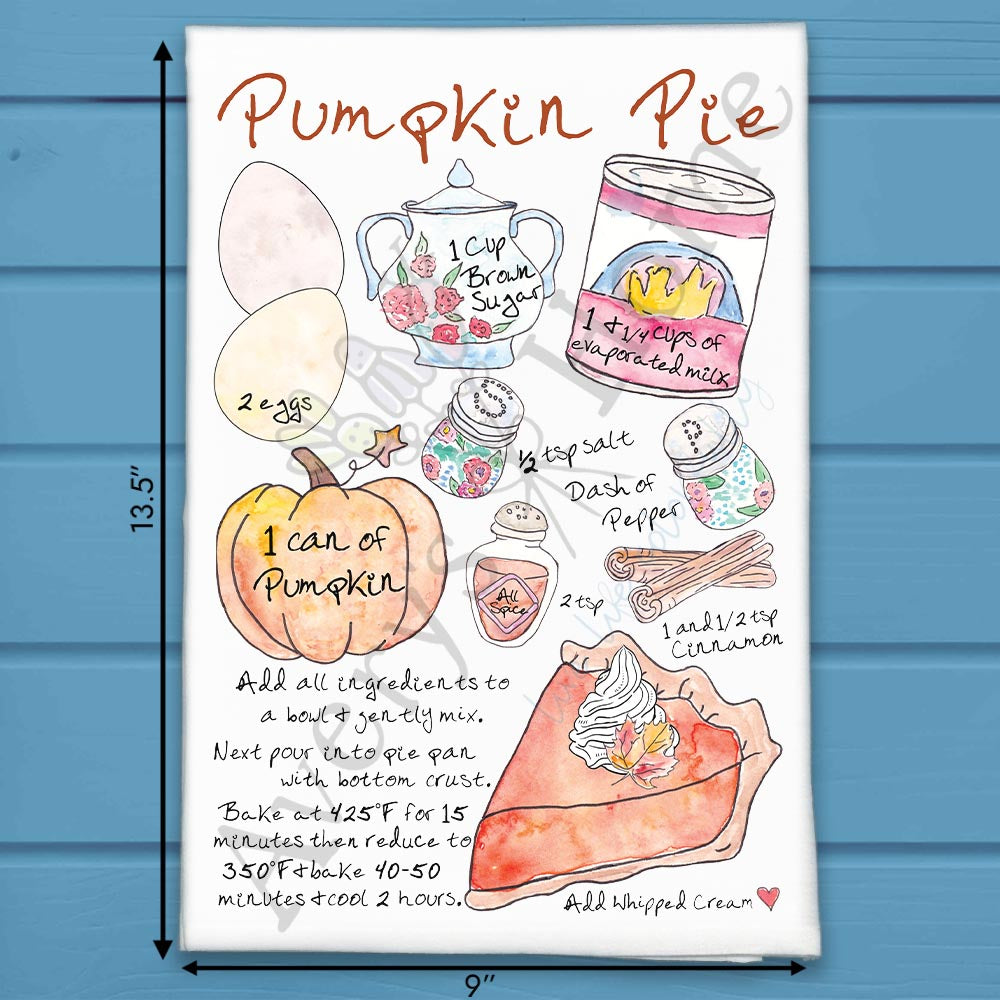 Pumpkin Pie
1 Cup
Brown
Sugar
1 & 1/4 cups of
evaporated milk
2 eggs
S
1/2 tsp salt
P
Dash of
Pepper
1 can of
Pumpkin
All
Spice
2 tsp
1 and 1/2 tsp
Cinnamon
Add all ingredients to
a bowl & gently mix.
Next pour into pie pan
with bottom crust.
Bake at 425°F for 15
minutes then reduce to
350°F & bake 40-50
minutes & cool 2 hours.
Add Whipped Cream
13.5"
9"
Avery's Home